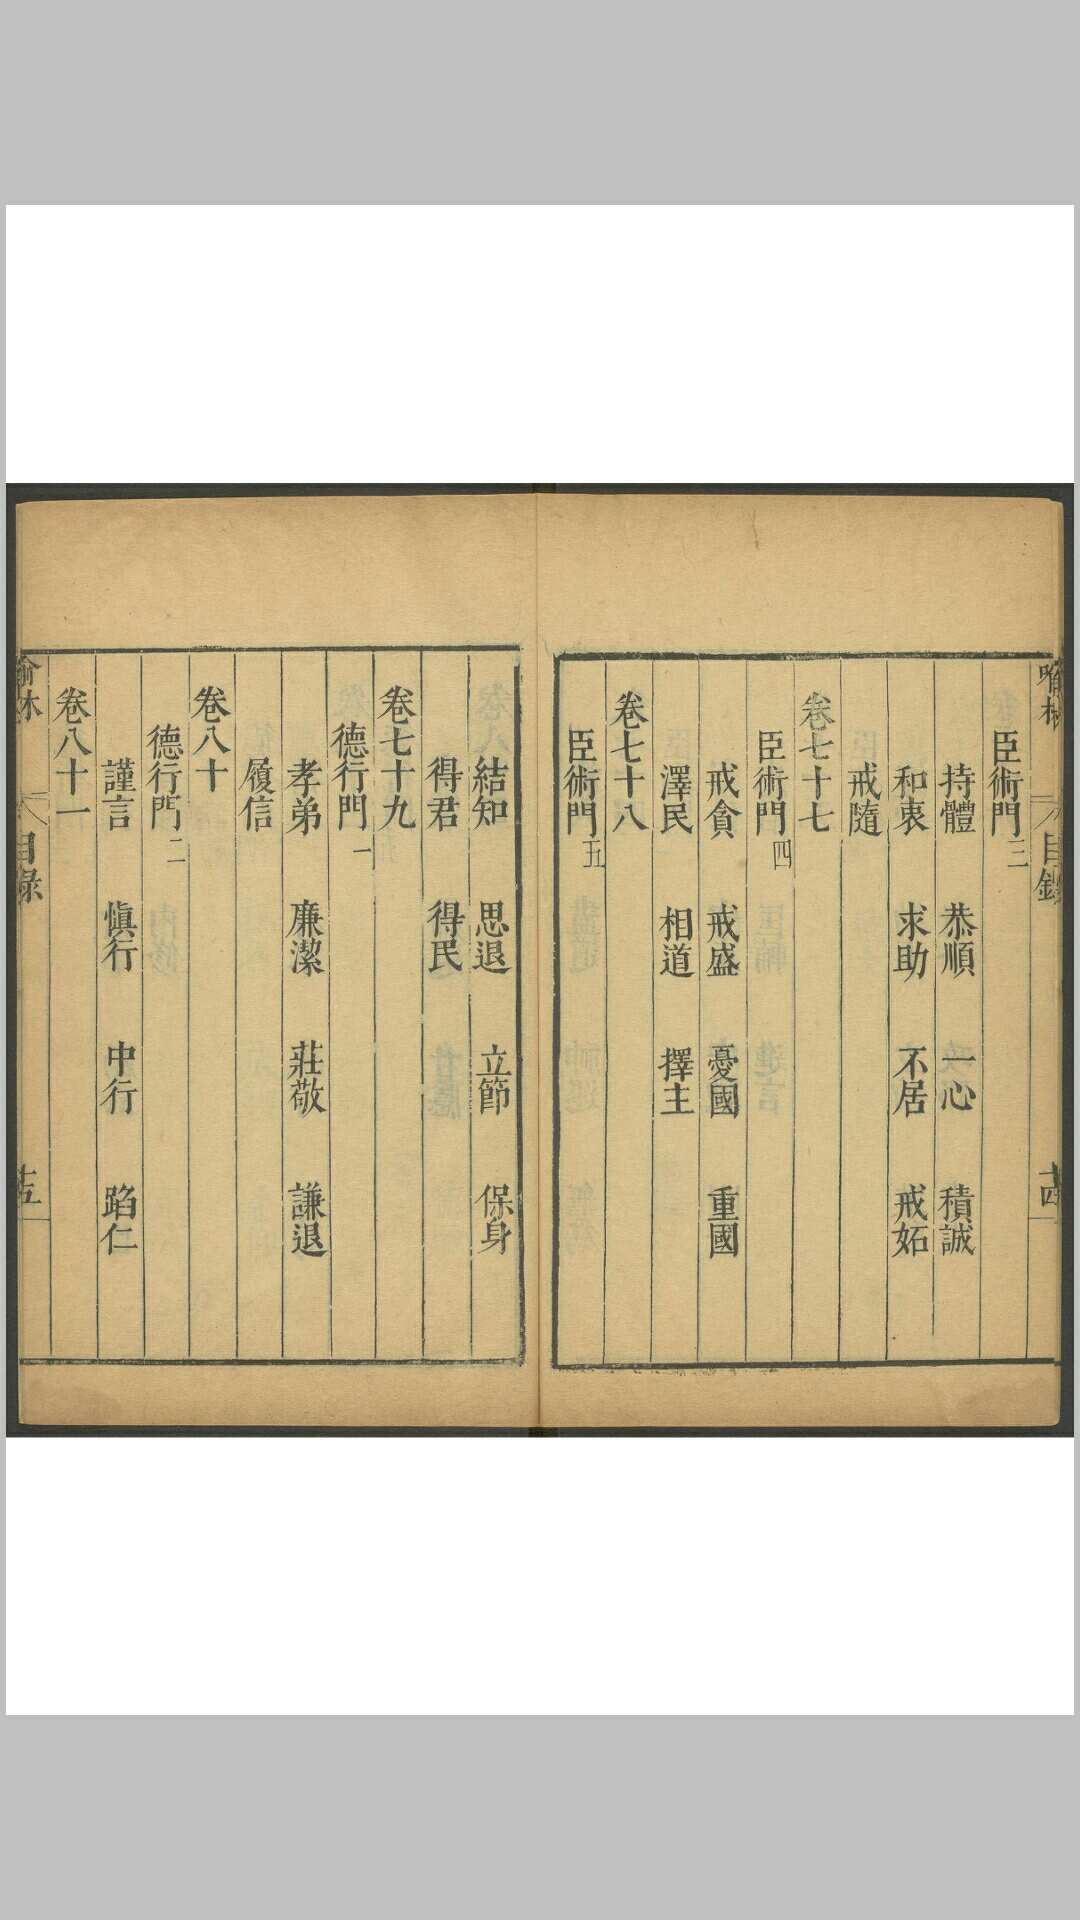 喻林
目錄
古
臣術門三
持體 恭順 一心 積誠
和衷 求助 不居 戒妬
戒隨
卷七十七
臣術門四
戒貪 戒盛 憂國 重國
澤民 相道 擇主
卷七十八
臣術門五
結知 思退 立節 保身
得君 得民
卷七十九
德行門一
孝弟 廉潔 莊敬 謙退
履信
卷八十
德行門二
謹言 愼行 中行 蹈仁
卷八十一
喻林
目錄